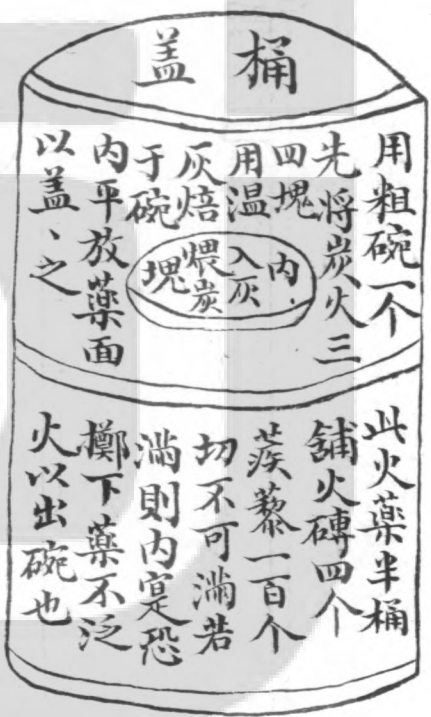 桶盖
用粗碗一个
先将炭火三
四塊
用温
灰焙
于碗
内平放藥面
以盖、之
内
入灰
煨炭
塊
此火藥半桶
舖火磚四个
蒺藜一百个
切不可滿若
滿則内寔恐
擲下藥不泛
火以出碗也